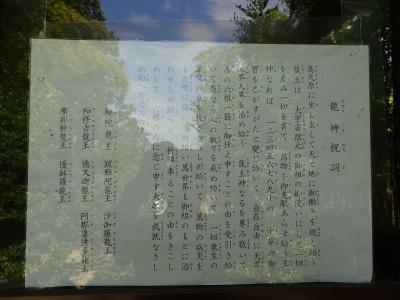 龍神祝詞
高天原に坐し坐して天と地に御働きを現し給う
龍王は 大宇宙根元の御祖の御使いにして一切
を産み一切を育て 萬物を御支配あらせ給う王
神なれば 一二三四五六七八九十の 十種の御
寶を己がすがたと変じ給いて 自在自由に天界
地界人界を治め給う 龍王神なるを尊み敬いて
眞の六根一筋に御仕え申すことの由を受引き給
いて愚なる心の数々を戒め給いて 一切衆生の
罪穢の衣を脱ぎさらしめ給いて 萬物の病災を
も立所に祓い清め給い 萬世界も御祖のもとに治
めせしめ給へと 祈願奉ることの由をきこし
めして 六根の内に念じ申す大願を成就なさし
め給へと
難陀龍王 跋難陀龍王 沙伽羅龍王
和修吉龍王 徳叉迦龍王 阿那婆達多龍王
摩那斯龍王 優鉢羅龍王